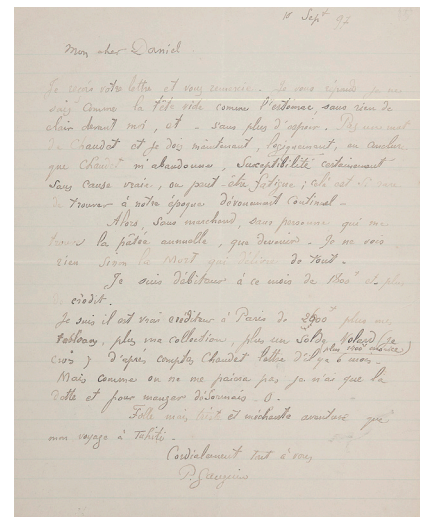 10 Sept 97
Mon cher Daniel.
Je reçois votre lettre et vous remercie. Je vous réponds
comme la tête vide comme l'estomac, sans rien de
clair devant moi, et - sans plus d'espoir. Pas un mot
de Chaudet et je dois maintenant, logiquement, en conclure
que Chaudet m'abandonne, susceptibilité certainement
sans cause vraie, ou peut-être fatigue ; cela est si rare
de trouver à notre époque dévouement continuel -
Alors, sans marchand, sans personne qui me
trouve la pâtée annuelle, que devenir - Je ne vois
rien sinon la Mort qui délivre de tout -
Je suis débiteur à ce mois de et plus
de crédit.
Je suis il est vrai créditeur à Paris de plus mes
tableaux, plus ma collection, plus un solde Volard (je
crois) d'après comptes Chaudet lettre d'il y a 6 mois.
Mais comme on ne me paiera pas je n'ai que la
dette et pour manger désormais - O -
Folle mais triste et méchante aventure que
mon voyage à Tahiti -
Cordialement tout à vous
P. Gauguin